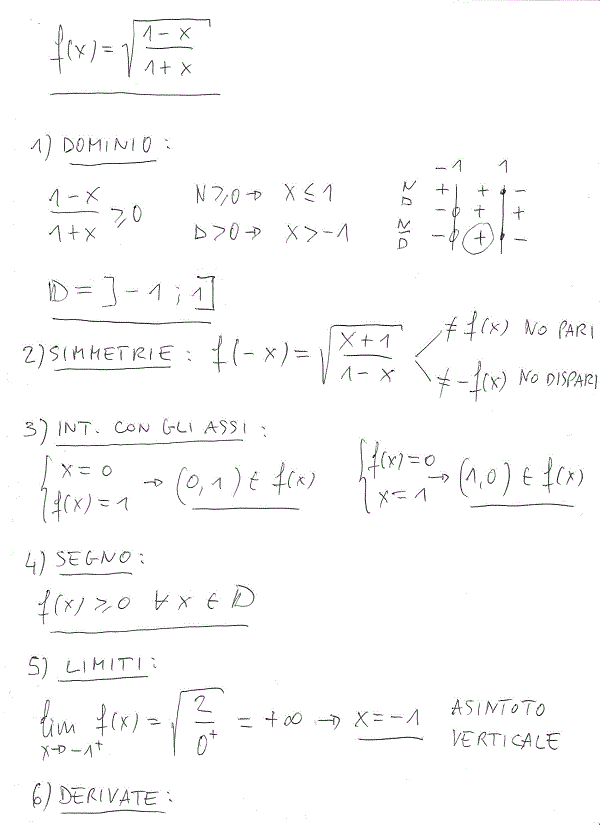 f(x) = √((1-x)/(1+x))
1) DOMINIO :
(1-x)/(1+x) ≥ 0   N ≥ 0 → x ≤ 1
D > 0 → x > -1
-1   1
N + + -
D - + +
N/D - + -
D = ]-1 ; 1]
2) SIMMETRIE : f(-x) = √((x+1)/(1-x))   ≠ f(x) NO PARI
≠ -f(x) NO DISPARI
3) INT. CON GLI ASSI :
{ x = 0   f(x) = 1 → (0,1) ∈ f(x)   { f(x) = 0   x = 1 → (1,0) ∈ f(x)
4) SEGNO :
f(x) ≥ 0 ∀ x ∈ D
5) LIMITI :
lim x→-1⁺ f(x) = √(2/0⁺) = +∞ → x = -1   ASINTOTO VERTICALE
6) DERIVATE :